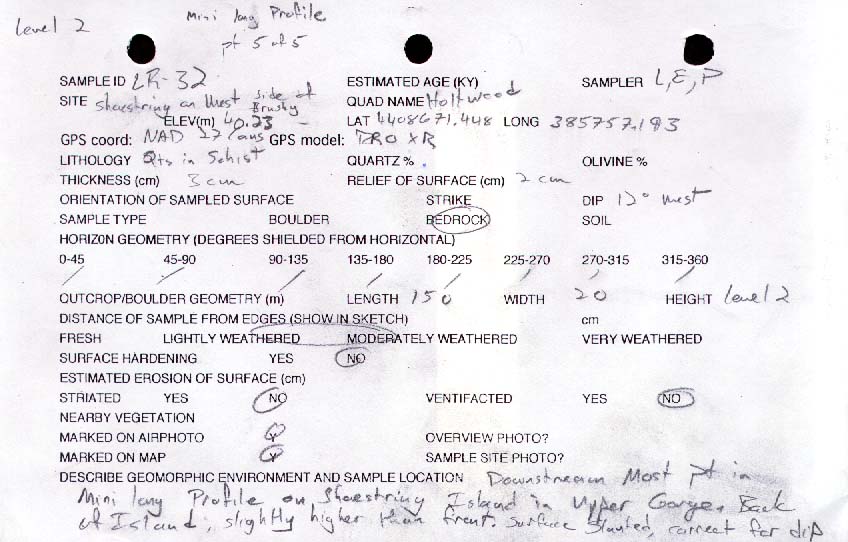 Level 2
Mini long Profile
pt 5 of 5
SAMPLE ID LR-32 ESTIMATED AGE (KY) SAMPLER L, E, P
SITE Shoestring on West side of Brushy QUAD NAME Holtwood
ELEV(m) 40.23 LAT 4408671.448 LONG 385757.193
GPS coord: NAD 27 /ans GPS model: PRO XR
LITHOLOGY Qts in Schist QUARTZ % OLIVINE %
THICKNESS (cm) 3 cm RELIEF OF SURFACE (cm) 2 cm
ORIENTATION OF SAMPLED SURFACE STRIKE DIP 12° West
SAMPLE TYPE BOULDER BEDROCK SOIL
HORIZON GEOMETRY (DEGREES SHIELDED FROM HORIZONTAL)
0-45 45-90 90-135 135-180 180-225 225-270 270-315 315-360
OUTCROP/BOULDER GEOMETRY (m) LENGTH 150 WIDTH 20 HEIGHT Level 2
DISTANCE OF SAMPLE FROM EDGES (SHOW IN SKETCH) cm
FRESH LIGHTLY WEATHERED MODERATELY WEATHERED VERY WEATHERED
SURFACE HARDENING YES NO
ESTIMATED EROSION OF SURFACE (cm)
STRIATED YES NO VENTIFACTED YES NO
NEARBY VEGETATION
MARKED ON AIRPHOTO OVERVIEW PHOTO?
MARKED ON MAP SAMPLE SITE PHOTO?
DESCRIBE GEOMORPHIC ENVIRONMENT AND SAMPLE LOCATION Downstream Most pt in
Mini long Profile on Shoestring Island in Upper Gorge. Back
of Island; slightly higher than front. Surface Slanted, correct for dip